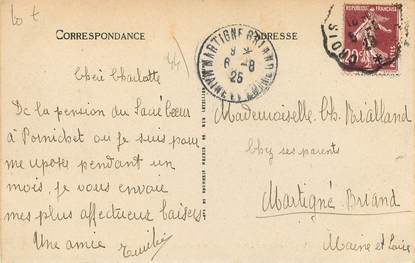 CORRESPONDANCE
Chère Charlotte
De la pension du Sacré Cœur
à Pornichet où je suis pour
me reposer pendant un
mois, je vous envoie
mes plus affectueux baisers
Une amie
ADRESSE
MARTIGNÉ-BRIAND
6 -8
25
MAINE ET LOIRE
REPUBLIQUE FRANÇAISE
20
Mademoiselle Ch. Brialland
Chez ses parents
Martigné-Briand
Maine et Loire